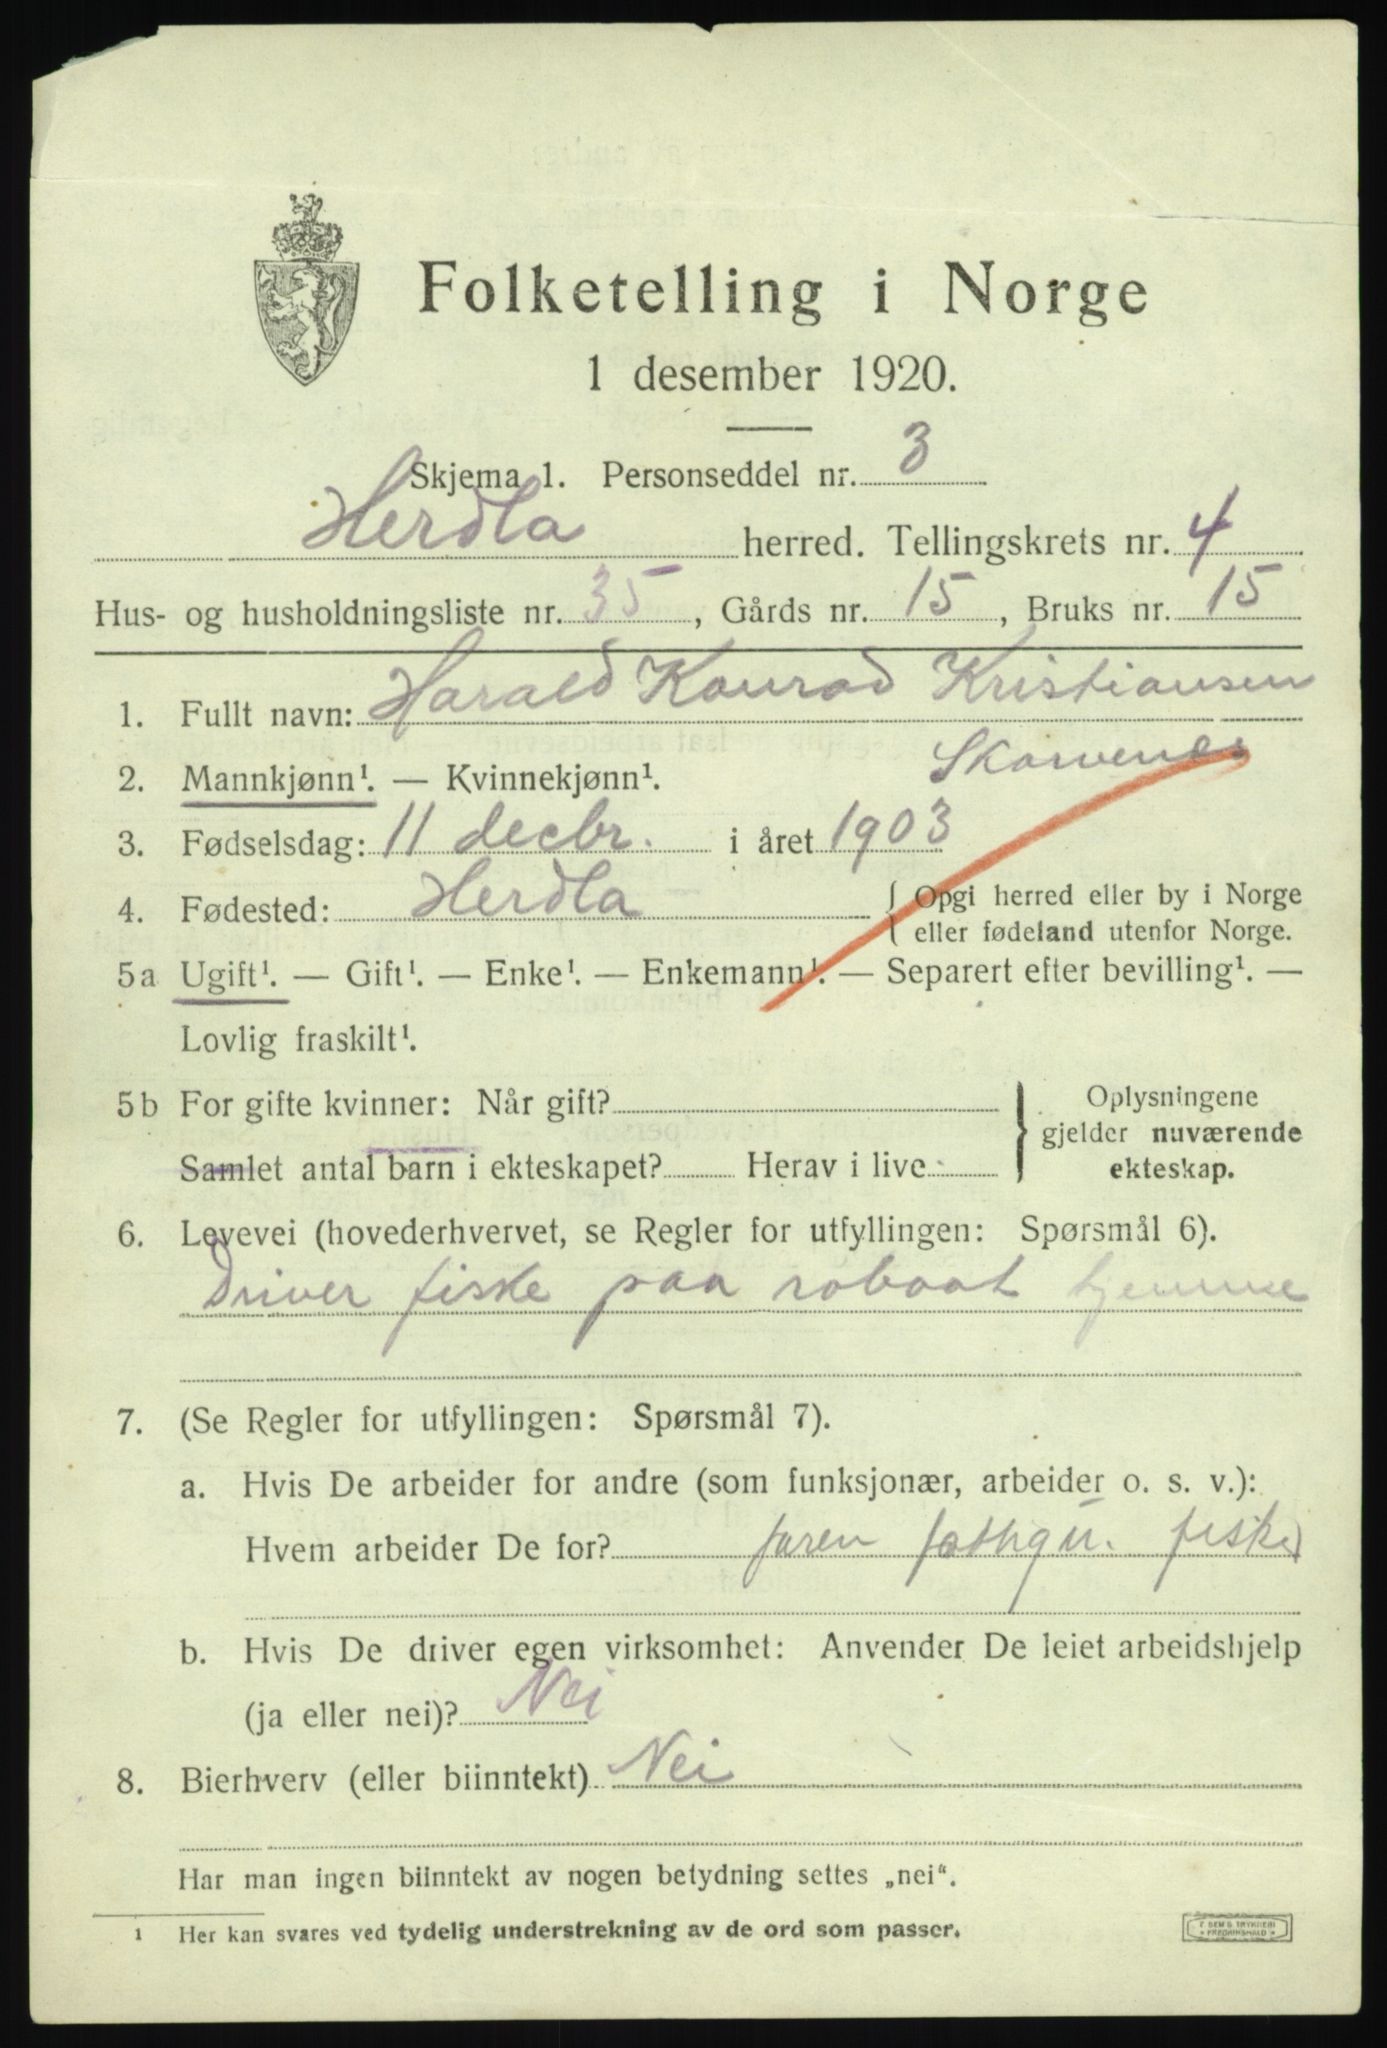 Folketelling i Norge
1 desember 1920.
Skjema 1. Personseddel nr. 3
Herdla herred. Tellingskrets nr. 4
Hus- og husholdningsliste nr. 35, Gårds nr. 15, Bruks nr. 15
1. Fullt navn: Harald Konrad Kristiansen
Skarvenes
2. Mannkjønn¹. — Kvinnekjønn¹.
3. Fødselsdag: 11 decbr. i året 1903
4. Fødested: Herdla { Opgi herred eller by i Norge
eller fødeland utenfor Norge.
5a Ugift¹. — Gift¹. — Enke¹. — Enkemann¹. — Separert efter bevilling¹. —
Lovlig fraskilt¹.
5b For gifte kvinner: Når gift? } Oplysningene
gjelder nuværende
Samlet antal barn i ekteskapet? Herav i live ekteskap.
6. Levevei (hovederhvervet, se Regler for utfyllingen: Spørsmål 6).
Driver fiske paa robaat hjemme
7. (Se Regler for utfyllingen: Spørsmål 7).
a. Hvis De arbeider for andre (som funksjonær, arbeider o. s. v.):
Hvem arbeider De for? faren fiske
b. Hvis De driver egen virksomhet: Anvender De leiet arbeidshjelp
(ja eller nei)? Nei
8. Bierhverv (eller biinntekt) Nei
Har man ingen biinntekt av nogen betydning settes „nei“.
¹ Her kan svares ved tydelig understrekning av de ord som passer.